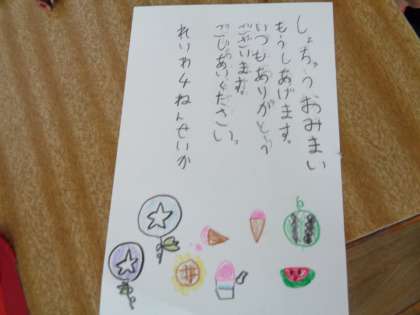 しょちゅうおみまい
もうしあげます。
いつもありがとう
ございます。
ごじあいください。
れいわ4ねんせいか